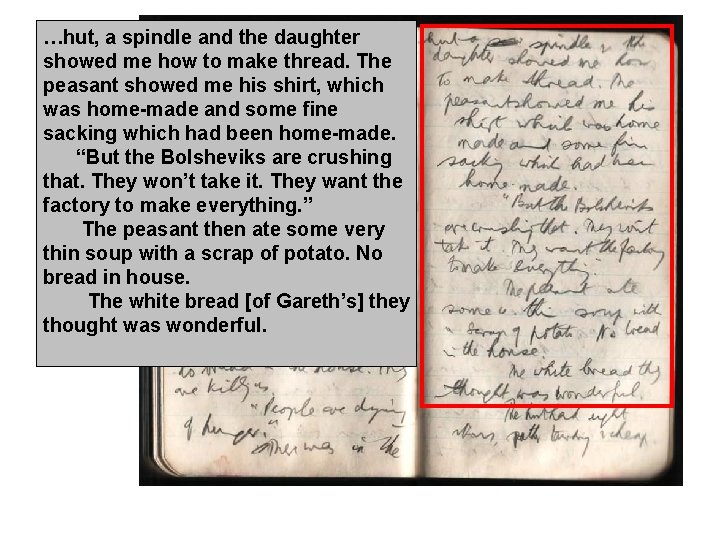 …hut, a spindle and the daughter
showed me how to make thread. The
peasant showed me his shirt, which
was home-made and some fine
sacking which had been home-made.
“But the Bolsheviks are crushing
that. They won’t take it. They want the
factory to make everything. ”
The peasant then ate some very
thin soup with a scrap of potato. No
bread in house.
The white bread [of Gareth’s] they
thought was wonderful.
the house. They
are killing us.
"People are dying
of hunger."
There was in the
hut a spindle & the
daughter showed me how
to make thread. The
peasant showed me his
shirt which was home
made and some fine
sacking which had been
home-made.
"But the Bolsheviks
are crushing that. They won't
take it. They want the factory
to make everything."
The peasant ate
some thin soup with
a scrap of potato. No bread
in the house.
The white bread they
thought was wonderful.
The hut had eight